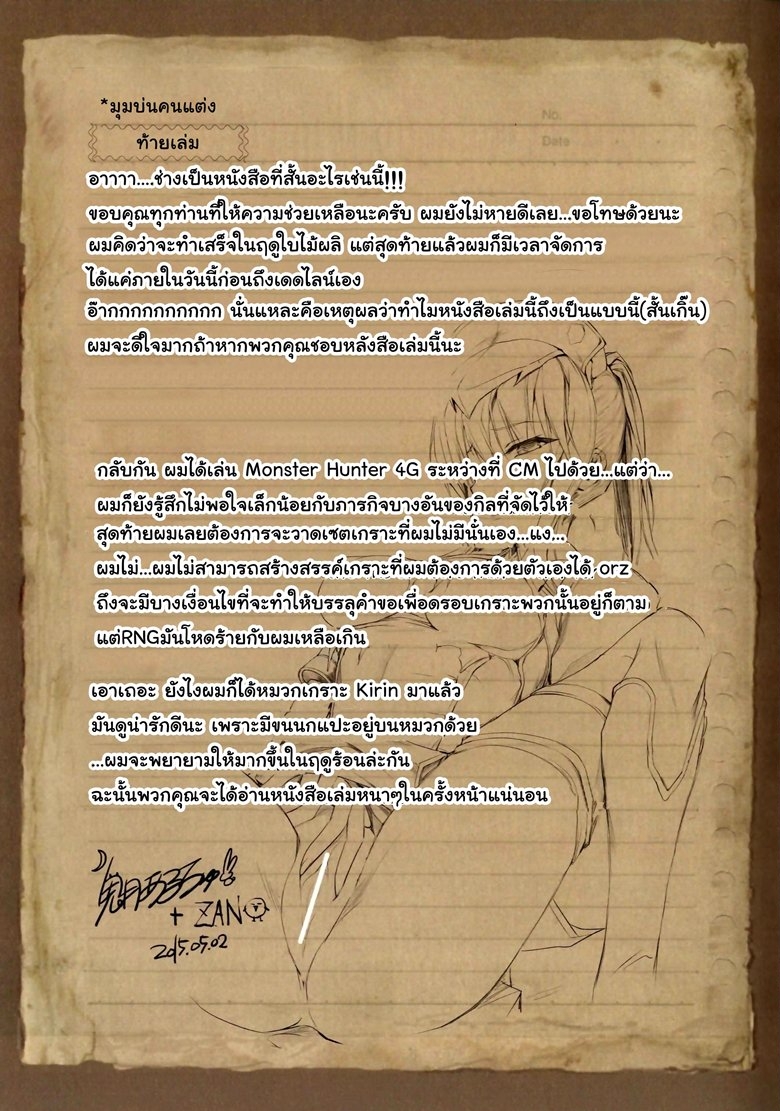 *มุมบ่นคนแต่ง
No.
ท้ายเล่ม
Date
อาาาา....ช่างเป็นหนังสือที่สั้นอะไรเช่นนี้!!!
ขอบคุณทุกท่านที่ให้ความช่วยเหลือนะครับ ผมยังไม่หายดีเลย...ขอโทษด้วยนะ
ผมคิดว่าจะทำเสร็จในฤดูใบไม้ผลิ แต่สุดท้ายแล้วผมก็มีเวลาจัดการ
ได้แค่ภายในวันนี้ก่อนถึงเดดไลน์เอง
อ๊ากกกกกกกกกกก นั่นแหละคือเหตุผลว่าทำไมหนังสือเล่มนี้ถึงเป็นแบบนี้(สั้นเกิ๊น)
ผมจะดีใจมากถ้าหากพวกคุณชอบหลังสือเล่มนี้นะ
กลับกัน ผมได้เล่น Monster Hunter 4G ระหว่างที่ CM ไปด้วย...แต่ว่า...
ผมก็ยังรู้สึกไม่พอใจเล็กน้อยกับภารกิจบางอันของกิลที่จัดไว้ให้
สุดท้ายผมเลยต้องการจะวาดเซตเกราะที่ผมไม่มีนั่นเอง...แง...
ผมไม่...ผมไม่สามารถสร้างสรรค์เกราะที่ผมต้องการด้วยตัวเองได้ orz
ถึงจะมีบางเงื่อนไขที่จะทำให้บรรลุคำขอเพื่อดรอบเกราะพวกนั้นอยู่ก็ตาม
แต่RNGมันโหดร้ายกับผมเหลือเกิน
เอาเถอะ ยังไงผมก็ได้หมวกเกราะ Kirin มาแล้ว
มันดูน่ารักดีนะ เพราะมีขนนกแปะอยู่บนหมวกด้วย
...ผมจะพยายามให้มากขึ้นในฤดูร้อนล่ะกัน
ฉะนั้นพวกคุณจะได้อ่านหนังสือเล่มหนาๆในครั้งหน้าแน่นอน
+ ZAN
2015.05.02